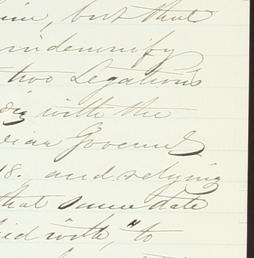 but that
indemnify
two Legations
with the
Govern
18. and relying
that same date
with, "to